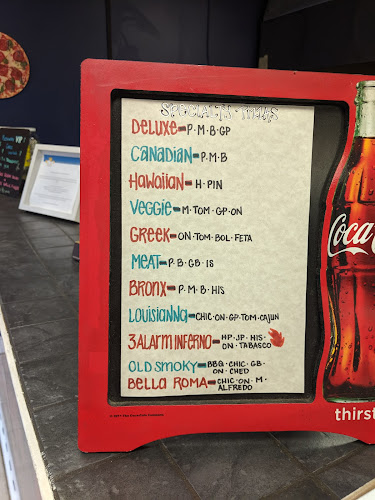 SPECIALTY THINS
DELUXE=P·M·B·GP
CANADIAN=P·M·B
HAWAIIAN=H·PIN
VEGGIE=M·TOM·GP·ON
GREEK=ON·TOM·BOL·FETA
MEAT=P·B·GB·IS
BRONX=P·M·B·HIS
LOUISIANNA=CHIC·ON·GP·TOM·CAJUN
3 ALARM INFERNO=HP·JP·HIS·
ON·TABASCO
OLD SMOKY=BBQ·CHIC·GB·
ON·CHED
BELLA ROMA=CHIC·ON·M·
ALFREDO
Coca
thirst